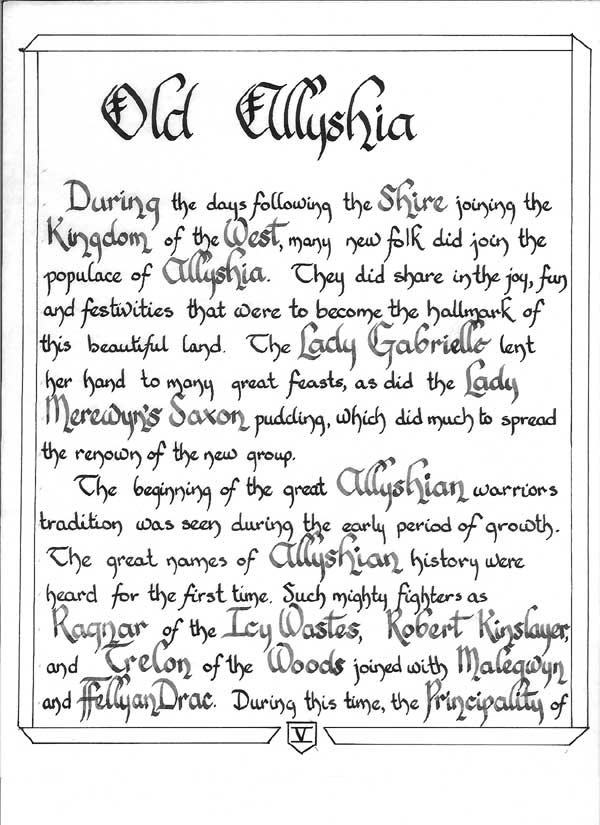 Old Allyshia
During the days following the Shire joining the
Kingdom of the West, many new folk did join the
populace of Allyshia. They did share in the joy, fun
and festivities that were to become the hallmark of
this beautiful land. The Lady Gabrielle lent
her hand to many great feasts, as did the Lady
Merewyn's Saxon pudding, which did much to spread
the renown of the new group.
The beginning of the great Allyshian warriors
tradition was seen during the early period of growth.
The great names of Allyshian history were
heard for the first time. Such mighty fighters as
Ragnar of the Icy Wastes, Robert Kinslayer,
and Trelon of the Woods joined with Malegwyn
and ffellyanDrac. During this time, the Principality of
V